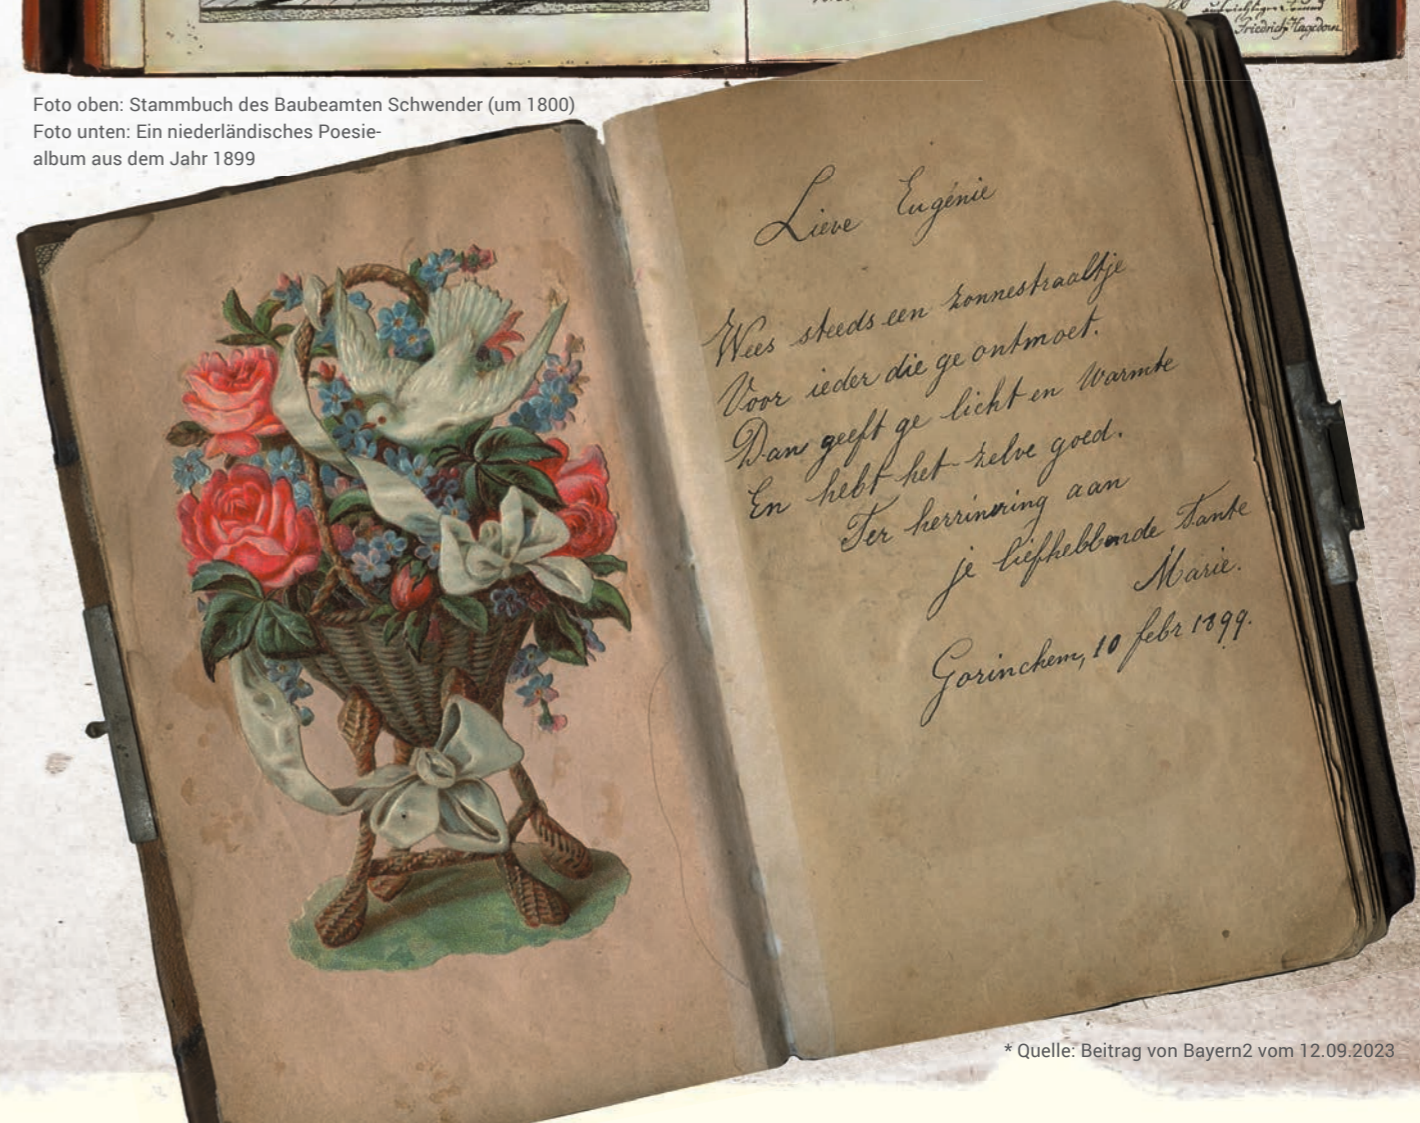 aufrichtiger Freund
Friedrich Hagedorn
Foto oben: Stammbuch des Baubeamten Schwender (um 1800)
Foto unten: Ein niederländisches Poesie-
album aus dem Jahr 1899
Lieve Eugénie
Wees steeds een zonnestraaltje
Voor ieder die ge ontmoet.
Dan geeft ge licht en warmte
En hebt het zelve goed.
Ter herrinering aan
je liefhebbende Tante
Marie.
Gorinchem, 10 febr 1899.
* Quelle: Beitrag von Bayern2 vom 12.09.2023